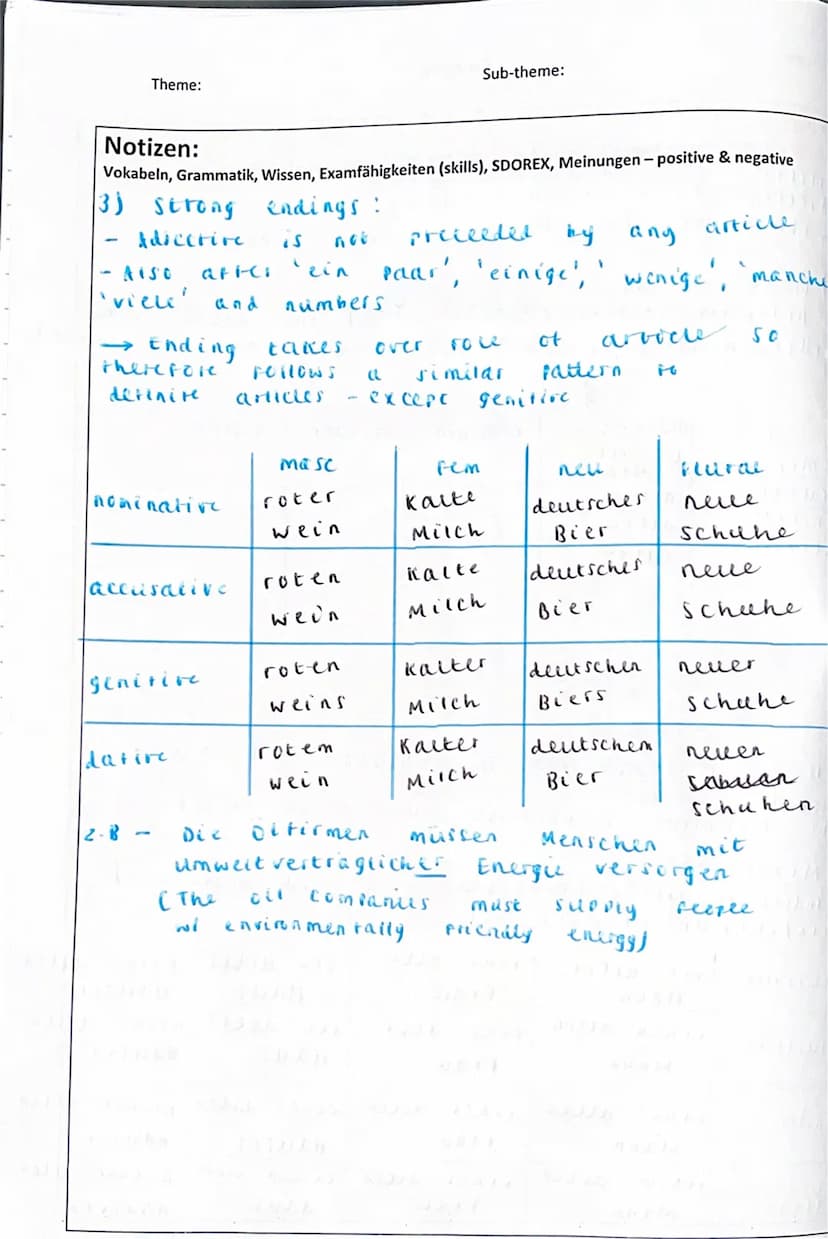 Theme:
Sub-theme:
Notizen:
Vokabeln, Grammatik, Wissen, Examfähigkeiten (skills), SDOREX, Meinungen – positive & negative
3) Strong endings :
- Adjective is not preceeded by any article
- Also after 'ein paar', 'einige', 'wenige', 'manche
'viele' and numbers
→ Ending takes over role of article so
therefore follows a similar pattern to
definite articles - except genitive
masc fem neu plural
nominative roter kalte deutsches neue
wein Milch Bier schuhe
accusative roten kalte deutsches neue
wein Milch Bier schuhe
genitive roten kalter deutschen neuer
weins Milch Biers schuhe
dative rotem kalter deutschem neuen
wein Milch Bier
schuhen
z.B - Die Ölfirmen müssen Menschen mit
umweltverträglicher Energie versorgen
(The oil companies must supply people
w/ environmentally friendly energy)